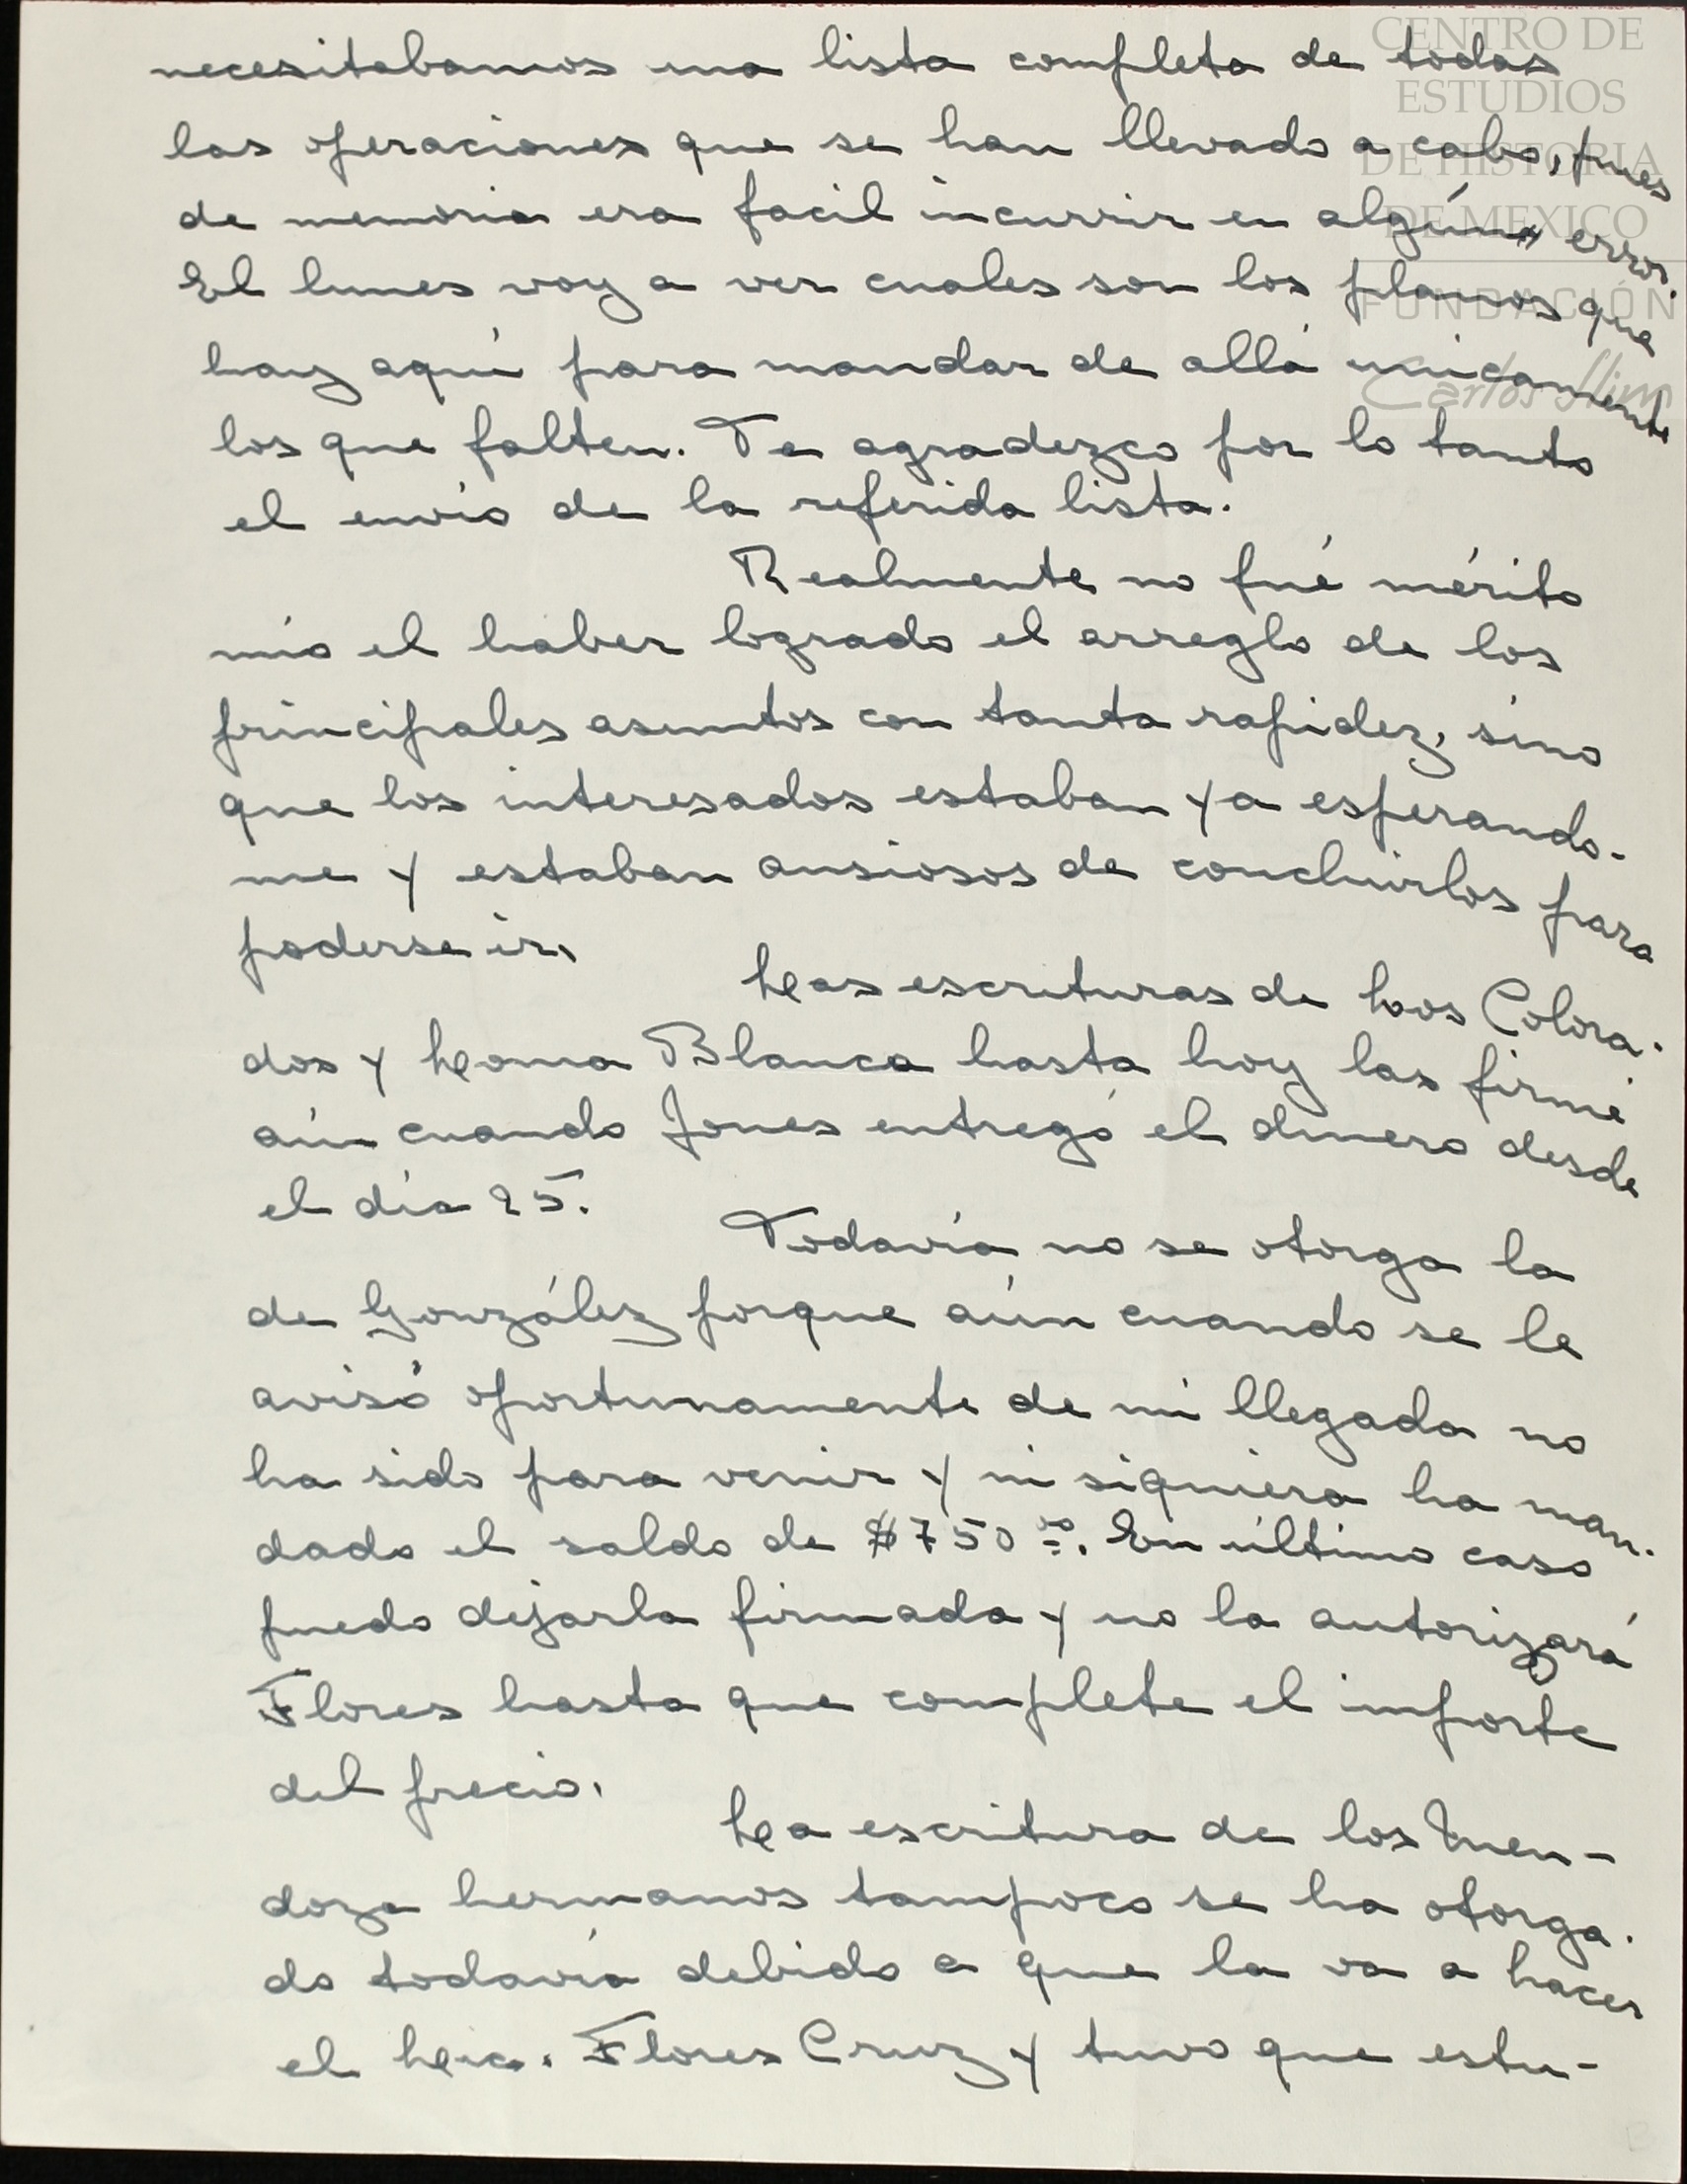 necesitabamos una lista completa de todas
las operaciones que se han llevado a cabo, pues
de memoria era facil incurrir en algún error.
El lunes voy a ver cuales son los planos que
hay aquí para mandar de allá unicamente
los que falten. Te agradezco por lo tanto
el envío de la referida lista.
Realmente no fué mérito
mío el haber logrado el arreglo de los
principales asuntos con tanta rapidez, sino
que los interesados estaban ya esperando-
me y estaban ansiosos de concluirlos para
poderse ir.
Las escrituras de Los Colora-
dos y Loma Blanca hasta hoy las firmé
aún cuando Jones entregó el dinero desde
el día 25.
Todavía no se otorga la
de González porque aún cuando se le
avisó oportunamente de mi llegada no
ha sido para venir y ni siquiera ha man-
dado el saldo de $750.00. En último caso
puedo dejarla firmada y no la autorizará
Flores hasta que complete el importe
del precio.
La escritura de los Men-
doza hermanos tampoco se ha otorga-
do todavía debido a que la va a hacer
el Lic. Flores Cruz y tuvo que estu-
CENTRO DE
ESTUDIOS
DE HISTORIA
DE MEXICO
FUNDACIÓN
Carlos Slim